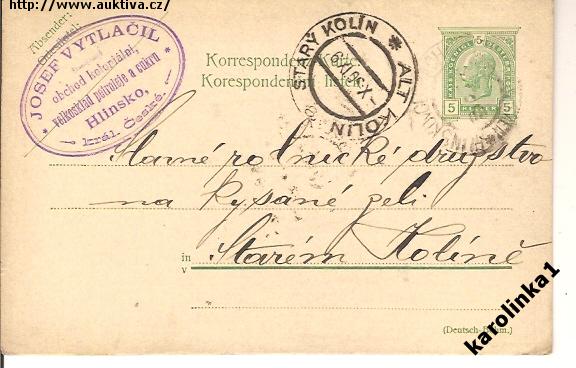 http://www.auktiva.cz/
Absender:
Odesilatel:
JOSEF VYTLAČIL
obchod koloniální
velkosklad petroleje a cukru
Hlinsko,
král. České.
Korrespondenz
Korespondenční lístek
STARÝ KOLÍN * ALT KOLIN
5 HELLER 5
Slavné rolnické družstvo
na kysané zelí
in
v
Starém Kolíně
(Deutsch-Böhm.)
karolinka1